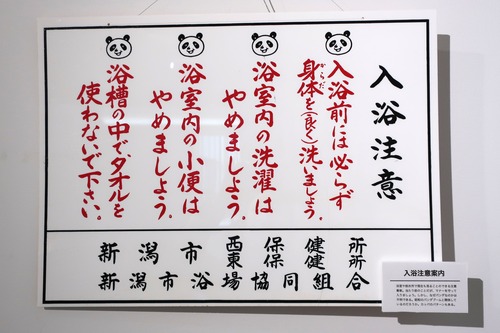 入浴注意
入浴前には必らず
身体を(良く)洗いましょう。
からだ
浴室内の洗濯は
やめましょう。
浴室内の小便は
やめましょう。
浴槽の中でタオルを
使わないで下さい。
新潟市西保健所
東保健所
新潟市浴場協同組合
入浴注意案内